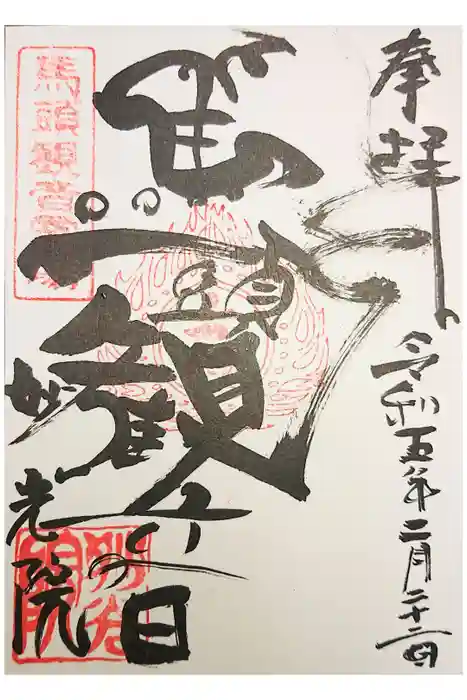 奉拝
令和五年二月二十二日
馬頭觀音
妙光院
馬頭観音